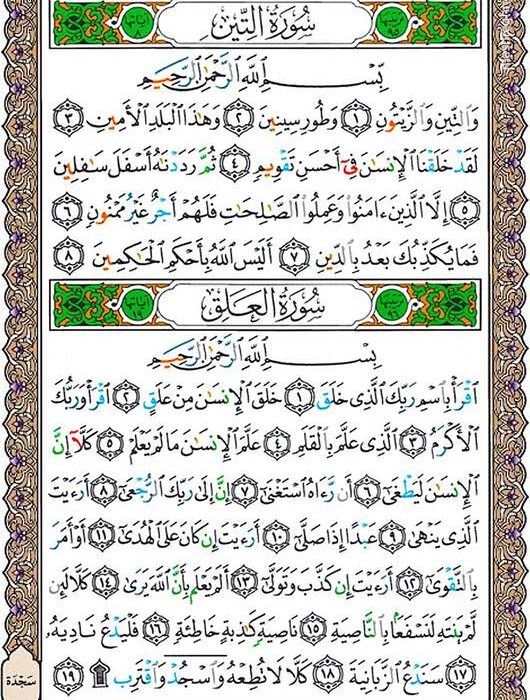 ترتيبها ٩٥ سُورَةُ التِّينِ آياتها ٨
بِسْمِ اللَّهِ الرَّحْمَٰنِ الرَّحِيمِ
وَالتِّينِ وَالزَّيْتُونِ ١ وَطُورِ سِينِينَ ٢ وَهَٰذَا الْبَلَدِ الْأَمِينِ ٣
لَقَدْ خَلَقْنَا الْإِنسَٰنَ فِىٓ أَحْسَنِ تَقْوِيمٍ ٤ ثُمَّ رَدَدْنَٰهُ أَسْفَلَ سَٰفِلِينَ
٥ إِلَّا الَّذِينَ ءَامَنُوا وَعَمِلُوا الصَّٰلِحَٰتِ فَلَهُمْ أَجْرٌ غَيْرُ مَمْنُونٍ ٦
فَمَا يُكَذِّبُكَ بَعْدُ بِالدِّينِ ٧ أَلَيْسَ اللَّهُ بِأَحْكَمِ الْحَٰكِمِينَ ٨
ترتيبها ٩٦ سُورَةُ الْعَلَقِ آياتها ١٩
بِسْمِ اللَّهِ الرَّحْمَٰنِ الرَّحِيمِ
اقْرَأْ بِاسْمِ رَبِّكَ الَّذِى خَلَقَ ١ خَلَقَ الْإِنسَٰنَ مِنْ عَلَقٍ ٢ اقْرَأْ وَرَبُّكَ
الْأَكْرَمُ ٣ الَّذِى عَلَّمَ بِالْقَلَمِ ٤ عَلَّمَ الْإِنسَٰنَ مَا لَمْ يَعْلَمْ ٥ كَلَّآ إِنَّ
الْإِنسَٰنَ لَيَطْغَىٰٓ ٦ أَن رَّءَاهُ اسْتَغْنَىٰٓ ٧ إِنَّ إِلَىٰ رَبِّكَ الرُّجْعَىٰٓ ٨ أَرَءَيْتَ
الَّذِى يَنْهَىٰ ٩ عَبْدًا إِذَا صَلَّىٰٓ ١٠ أَرَءَيْتَ إِن كَانَ عَلَى الْهُدَىٰٓ ١١ أَوْ أَمَرَ
بِالتَّقْوَىٰٓ ١٢ أَرَءَيْتَ إِن كَذَّبَ وَتَوَلَّىٰٓ ١٣ أَلَمْ يَعْلَم بِأَنَّ اللَّهَ يَرَىٰ ١٤ كَلَّا لَئِن
لَّمْ يَنتَهِ لَنَسْفَعًۢا بِالنَّاصِيَةِ ١٥ نَاصِيَةٍ كَٰذِبَةٍ خَاطِئَةٍ ١٦ فَلْيَدْعُ نَادِيَهُۥ
١٧ سَنَدْعُ الزَّبَانِيَةَ ١٨ كَلَّا لَا تُطِعْهُ وَاسْجُدْ وَاقْتَرِب ۩ ١٩
سَجْدَة